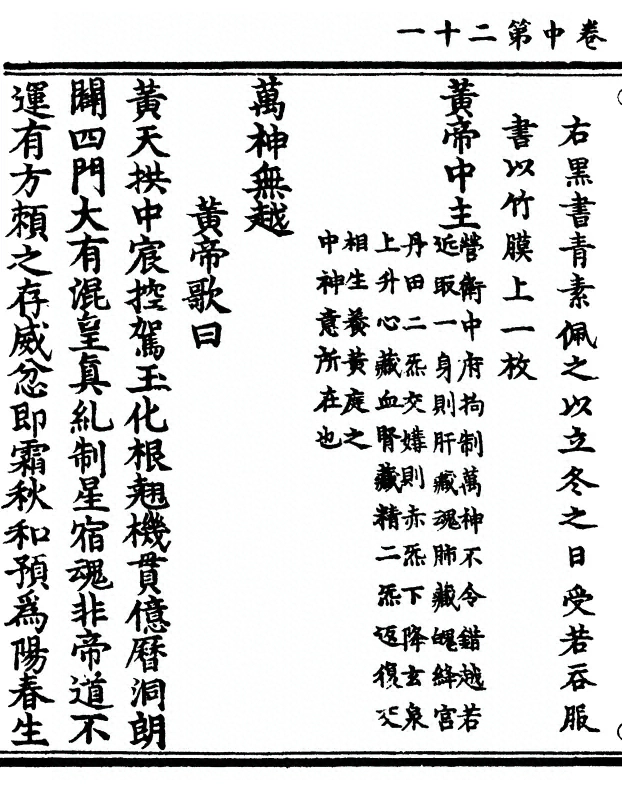 卷中第二十一
右黑書青素佩之以立冬之日受若吞服
書以竹膜上一枚
黃帝中主
營衛中府拘制萬神不令錯越若
近取一身則肝藏魂肺藏魄絳宮
丹田二炁交媾則赤炁下降玄泉
上升心藏血腎藏精二炁返復交
相生養黃庭之
中神意所在也
萬神無越
黃帝歌曰
黃天拱中宸控駕玉化根翹機貫億曆洞朗
闢四門大有混皇真糺制星宿魂非帝道不
運有方賴之存威忿即霜秋和預為陽春生